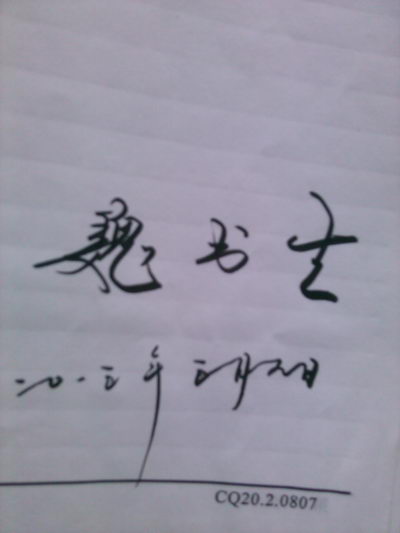 魏书生
二〇一三年三月六日
CQ20.2.0807